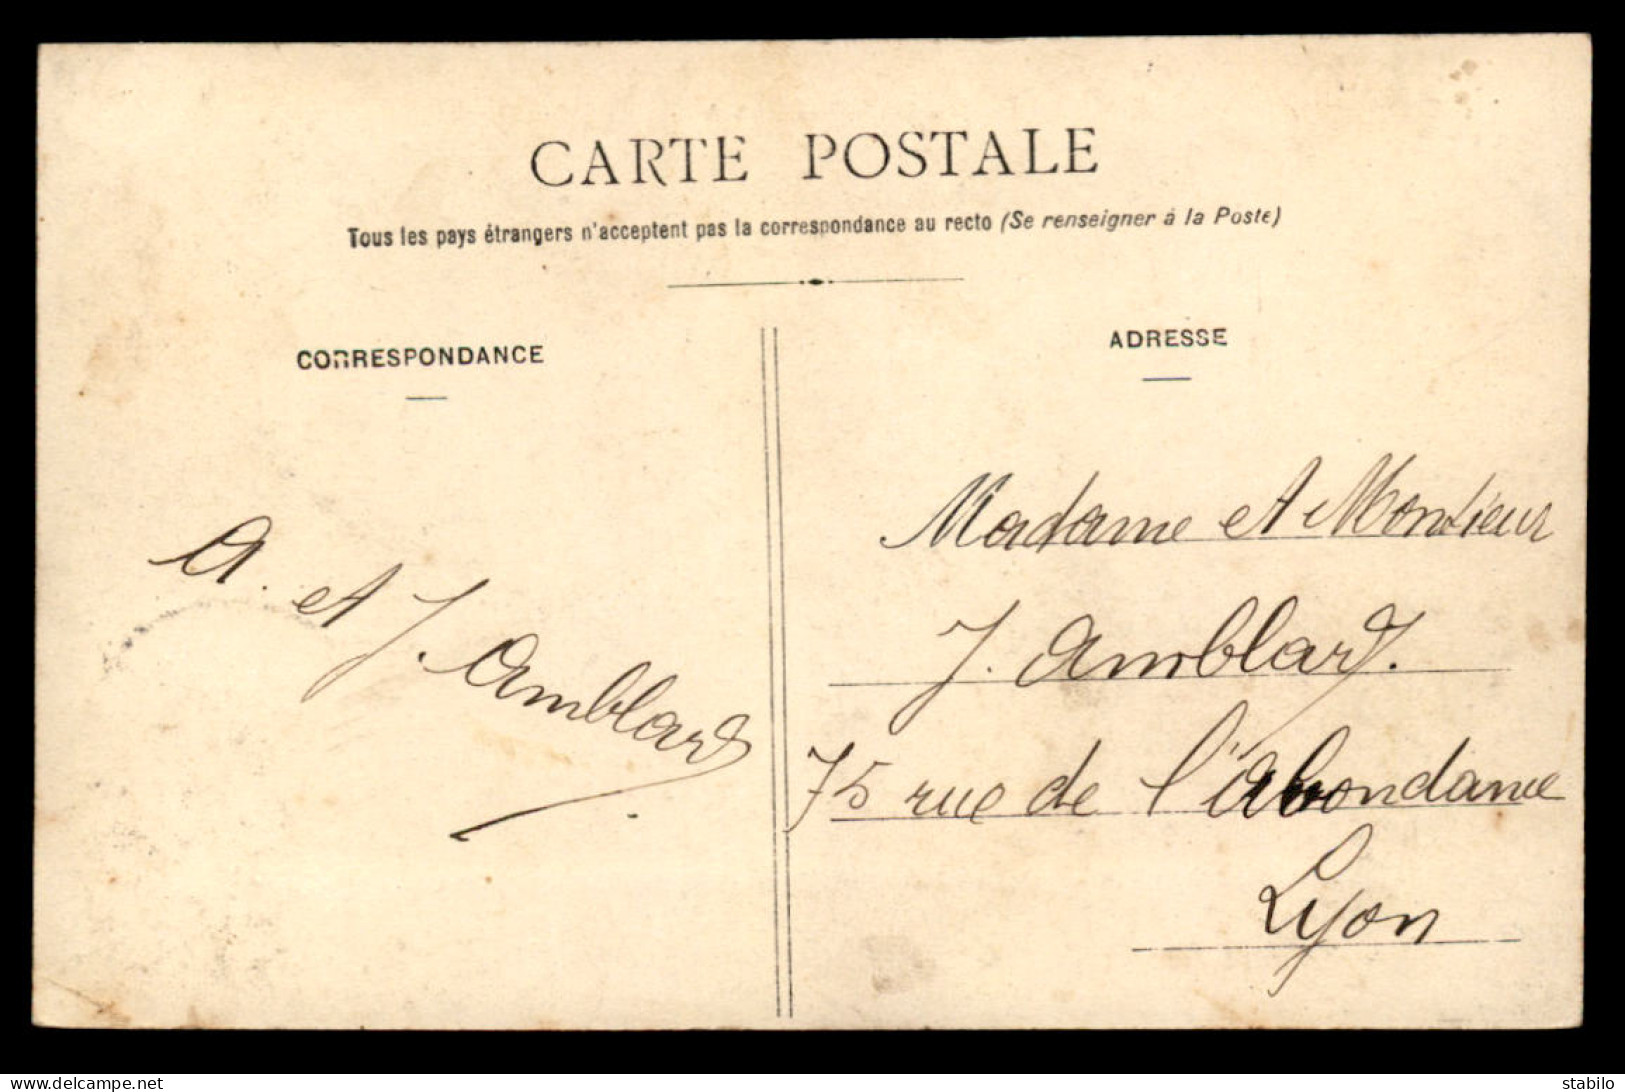 CARTE POSTALE
Tous les pays étrangers n'acceptent pas la correspondance au recto (Se renseigner à la Poste)
CORRESPONDANCE
A. et J. Amblard
ADRESSE
Madame et Monsieur
J. Amblard.
75 rue de l'Abondance
Lyon
delcampe.net
stabilo